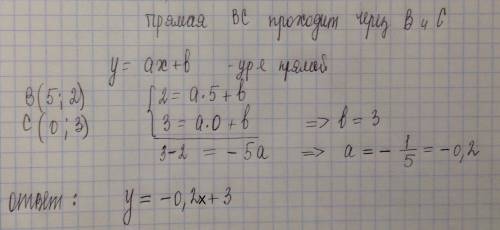 прямая BC проходит через B и C
y = ax+b - ур-е прямой
B(5; 2) { 2 = a·5 + b
C(0; 3) 3 = a·0 + b => b = 3
3-2 = -5a => a = - 1/5 = -0,2
ответ: y = -0,2x+3